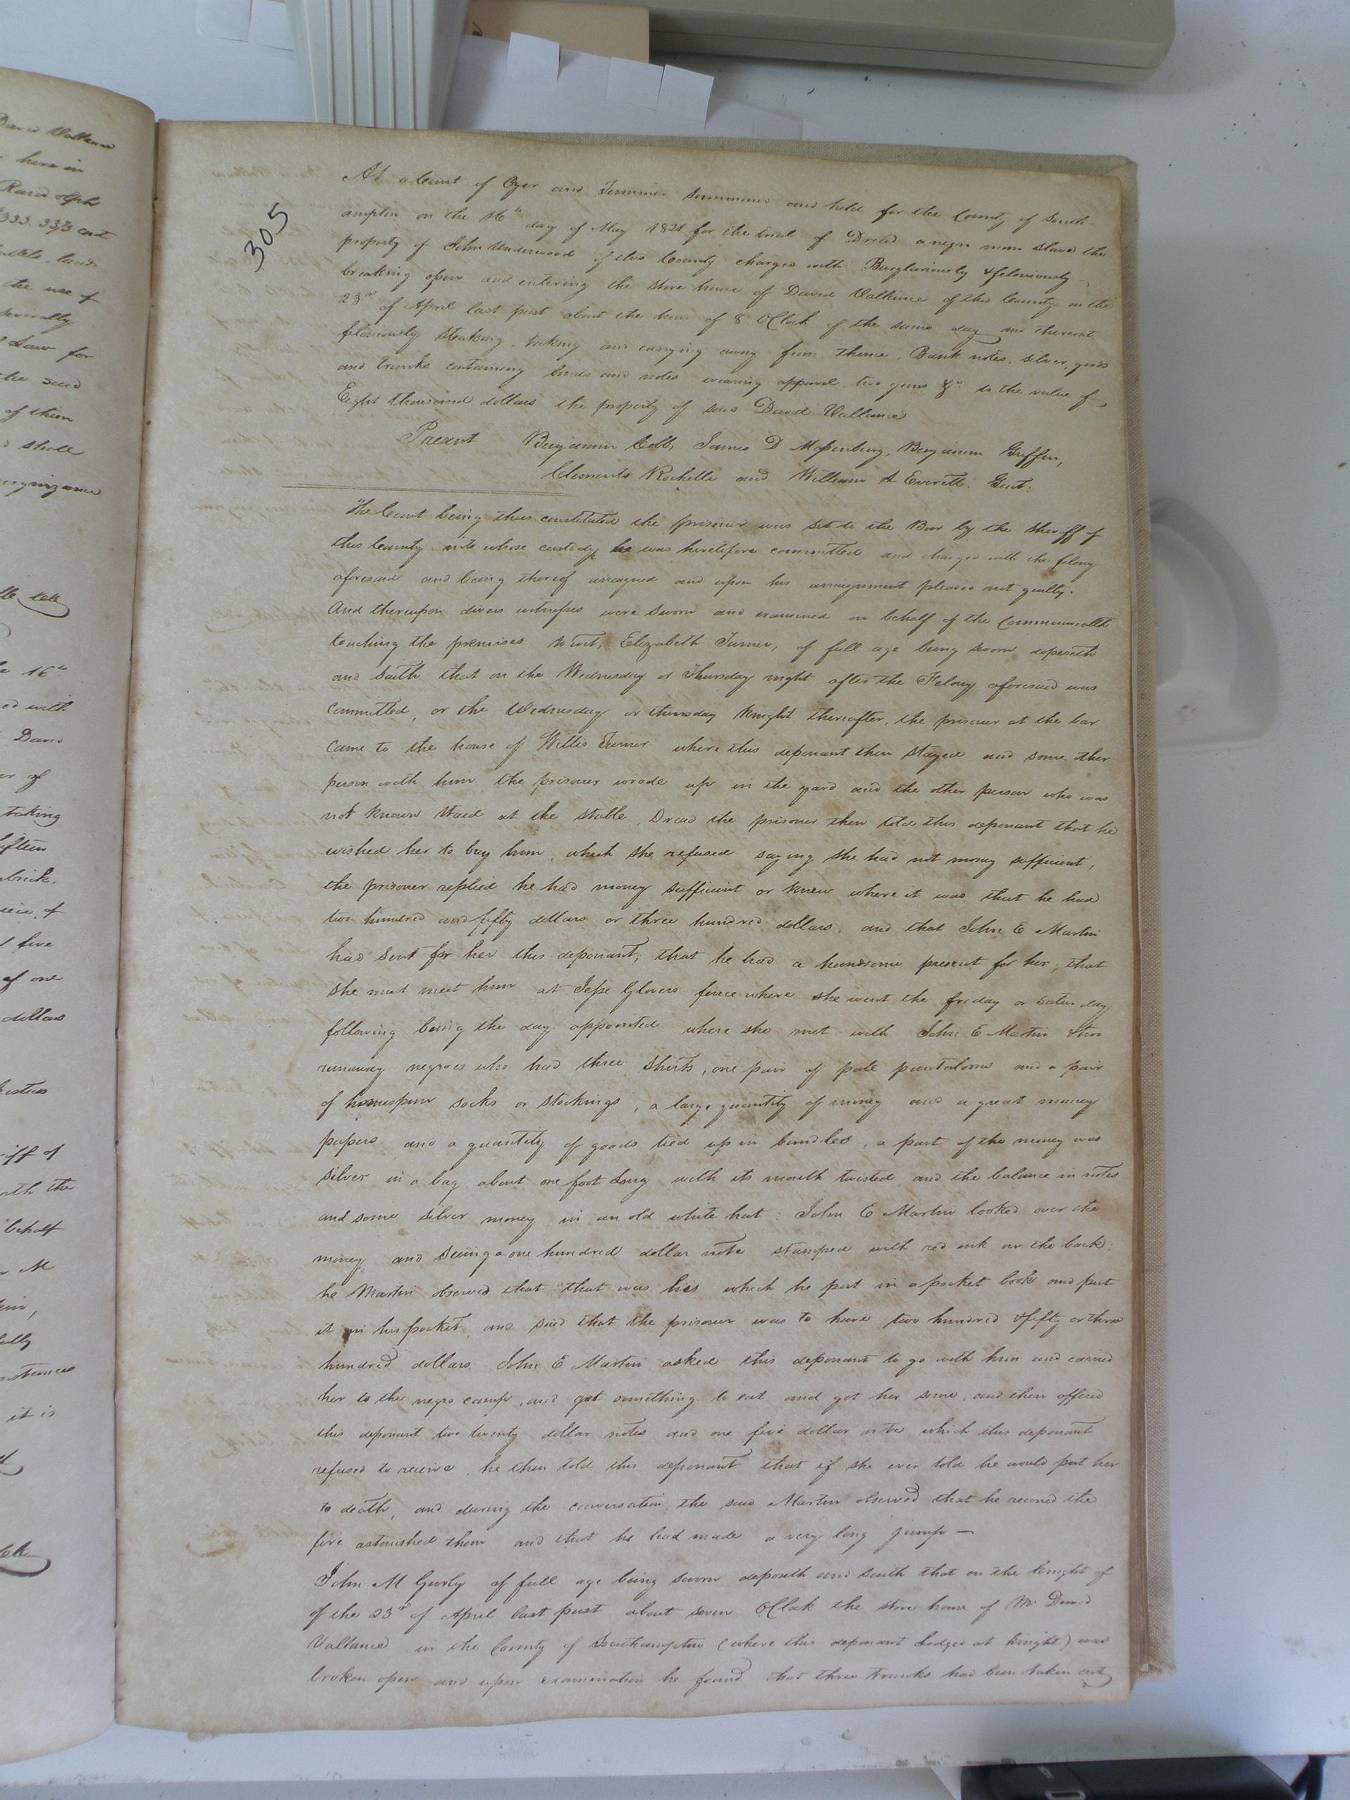 305
At a Court of Oyer and Terminer Summoned and held for the County of South-
ampton on the 16th day of May 1821 for the trial of Dread a negro man slave the
property of John Underwood of this County charged with Burglariously & feloniously
breaking open and entering the store house of David Vallance of this County on the
23rd of April last past about the hour of 8 OClock of the same day and thereout
feloniously stealing, taking and carrying away from thence, Bank notes, silver, goods
and trunks containing bonds and notes wearing apparel two guns &c. to the value of
Eight thousand dollars the property of said David Vallance
Present Benjamin Cobb, James D Massenburg, Benjamin Griffin,
Clements Rochelle and William A Everett. Gent:
The Court being thus constituted the prisoner was set to the Bar by the Sheriff of
this County into whose custody he was heretofore committed and charged with the felony
aforesaid and being thereof arraigned and upon his arraignment pleaded not guilty.
And thereupon divers witnesses were sworn and examined on behalf of the Commonwealth
touching the premises to wit, Elizabeth Turner, of full age being sworn deposeth
and saith that on the Wednesday or Thursday night after the Felony aforesaid was
Committed, or the Wednesday or thursday Knight thereafter, the prisoner at the bar
came to the house of Willis Turner where this deponant then stayed and some other
person with him the prisoner wrode up in the yard and the other person who was
not known staid at the stable, Dread the prisoner then told this deponant that he
wished her to buy him, which she refused saying she had not money sufficient,
the prisoner replied he had money sufficient or knew where it was that he had
two hundred and fifty dollars or three hundred dollars, and that John E Martin
had sent for her this deponant, that he had a handsome present for her, that
she must meet him at Jesse Glovers fence where she went the friday or saturday
following being the day appointed where she met with John E Martin & two
runaway negroes who had three shirts, one pair of pale pantaloons and a pair
of homespun socks or stockings, a large quantity of money and a great many
papers and a quantity of goods tied up in bundles, a part of the money was
silver in a bag about one foot long with its mouth twisted and the balance in notes
and some silver money in an old white hat: John E Martin looked over the
money and seeing a one hundred dollar note stamped with red ink on the back:
he Martin observed that that was his which he put in a pocket book and put
it in his pocket, and said that the prisoner was to have two hundred & fifty or three
hundred dollars. John E Martin asked this deponant to go with him and carried
her to the negro camp, and got something to eat and got her some, and then offered
this deponant two twenty dollar notes and one five dollar note which this deponant
refused to receive, he then told this deponant that if she ever told he would put her
to death, and during the conversation the said Martin observed that he reared the
fire astonished them and that he had made a very long jump —
John M Gurly of full age being sworn deposeth and saith that on the knight of
of the 23rd of April last past about seven OClock the store house of Mr. David
Vallance in the County of Southampton (where this deponant lodged at knight) was
broken open and upon examination he found that three trunks had been taken out